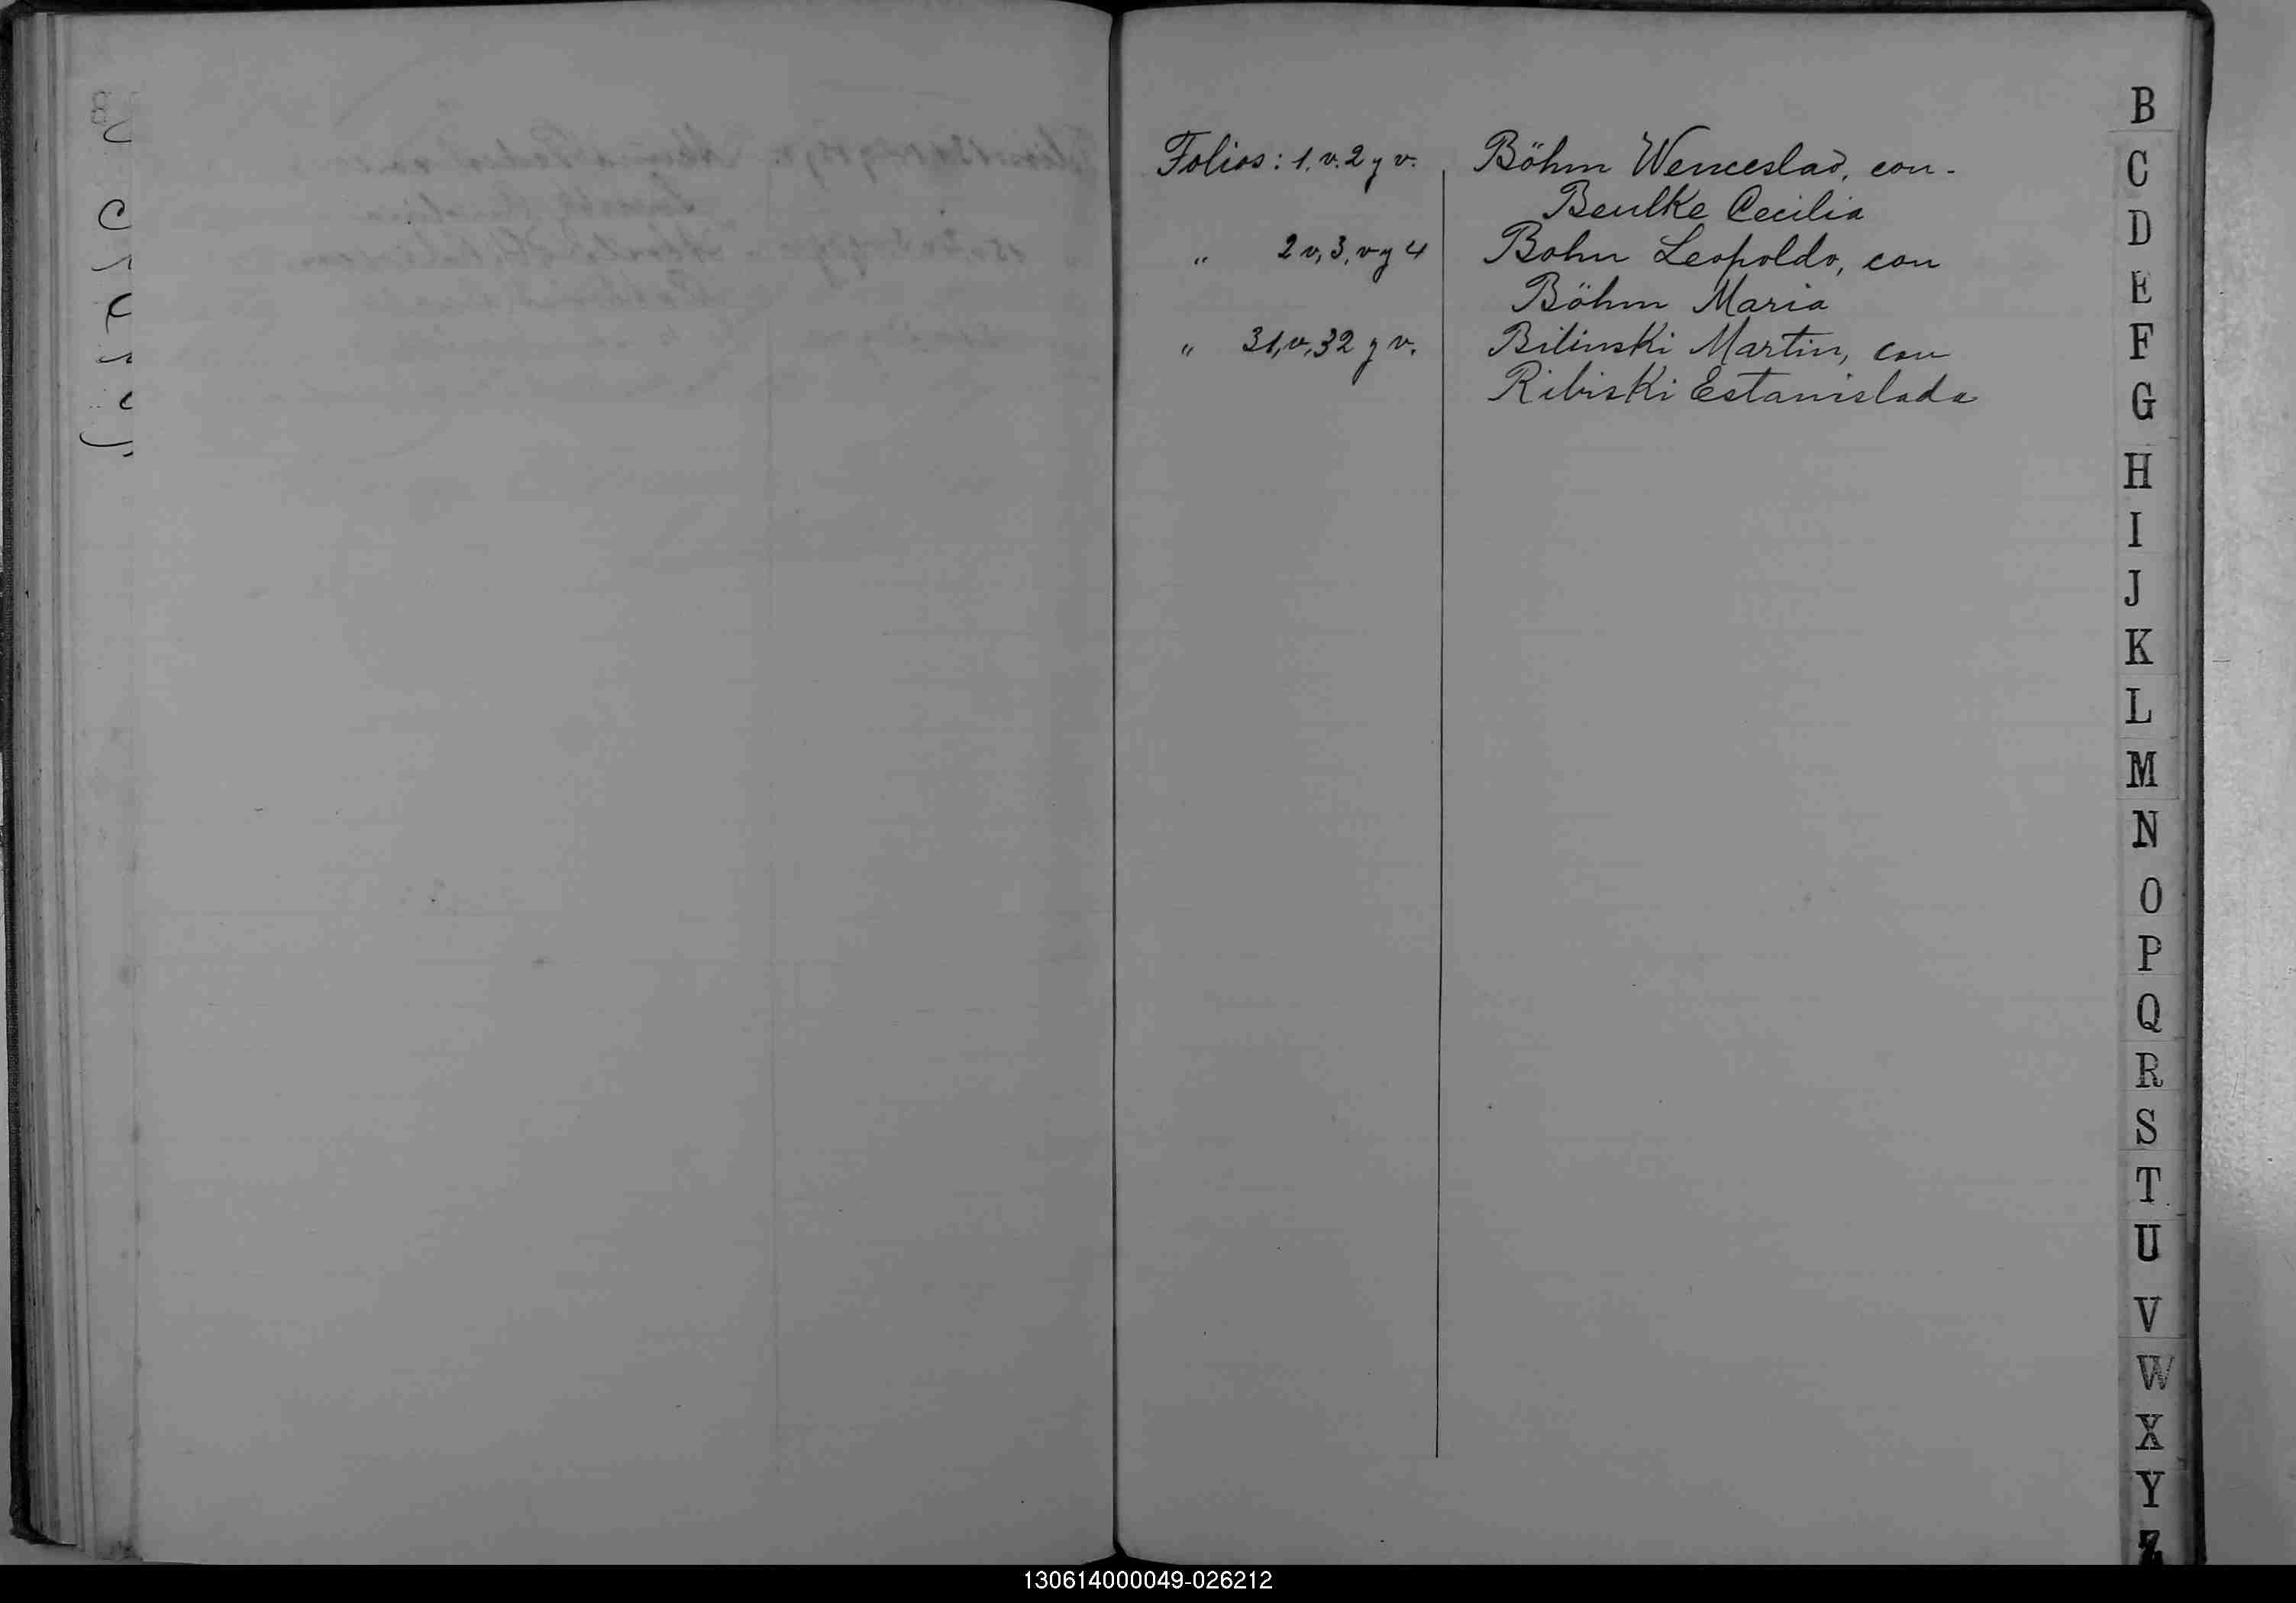 Folios: 1. v. 2 y v. Böhm Wenceslao, con.
Beulke Cecilia
" 2 v, 3, v y 4 Bohn Leopoldo, con
Böhm Maria
" 31, v, 32 y v. Bilinski Martin, con
Ribiski Estanislada
B
C
D
E
F
G
H
I
J
K
L
M
N
O
P
Q
R
S
T
U
V
W
X
Y
Z
130614000049-026212